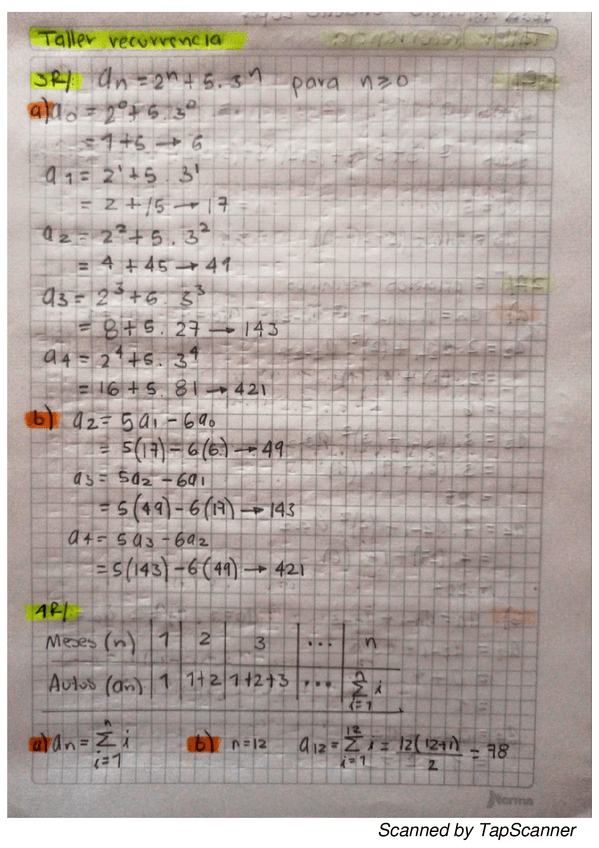 Taller recurrencia
3R/. an = 2^n + 5 . 3^n para n≥0
a) a0 = 2^0 + 5 . 3^0
= 1+5 → 6
a1 = 2^1 + 5 . 3^1
= 2 + 15 → 17
a2 = 2^2 + 5 . 3^2
= 4 + 45 → 49
a3 = 2^3 + 5 . 3^3
= 8 + 5 . 27 → 143
a4 = 2^4 + 5 . 3^4
= 16 + 5 . 81 → 421
b) a2 = 5a1 - 6a0
= 5(17) - 6(6) → 49
a3 = 5a2 - 6a1
= 5(49) - 6(17) → 143
a4 = 5a3 - 6a2
= 5(143) - 6(49) → 421
4R/.
Meses (n) | 1 | 2 | 3 | ... | n
Autos (an) | 1 | 1+2 | 1+2+3 | ... | ∑_{i=1}^{n} i
a) an = ∑_{i=1}^{n} i b) n=12 a12 = ∑_{i=1}^{12} i = 12(12+1)/2 = 78
Norma
Scanned by TapScanner